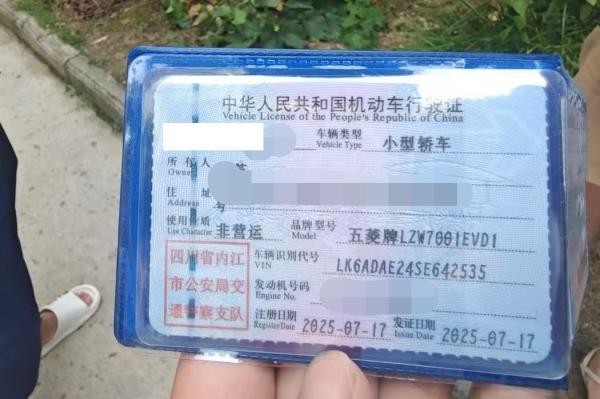 中华人民共和国机动车行驶证
Vehicle License of the People's Republic of China
车辆类型 小型轿车
Vehicle Type
所有人
Owner
住 址
Address
使用性质 非营运 品牌型号 五菱牌LZW7001EVD1
Use Character Model
四川省内江市公安局交通警察支队
车辆识别代号 LK6ADAE24SE642535
VIN
发动机号码
Engine No.
注册日期 2025-07-17 发证日期 2025-07-17
Register Date Issue Date